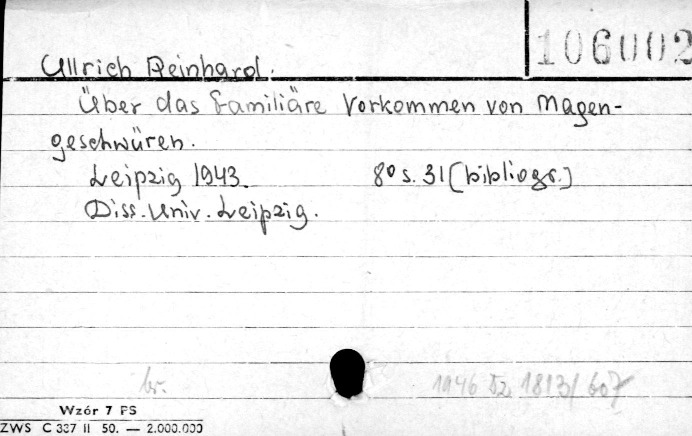 106002
Ullrich Reinhard.
Über das Familiäre Vorkommen von Magen-
geschwüren.
Leipzig 1943. 8° s. 31 [bibliogr.]
Diss. Univ. Leipzig.
br. 1946 1813/607
Wzór 7 PS
ZWS C 337 II 50. — 2.000.000